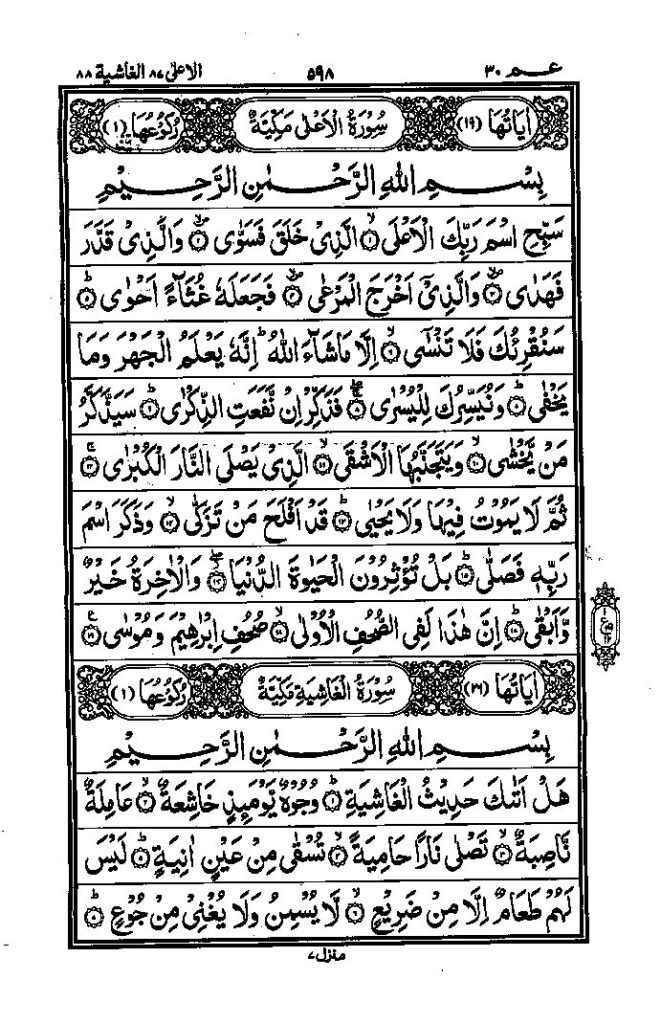 عـــم ٣٠ ٥٩٨ الاعلٰى ٨٧ الغاشية ٨٨
اٰیَاتُهَا (١٩) سُوْرَةُ الْاَعْلٰى مَكِّيَّةٌ رُكُوْعُهَا (١)
بِسْــمِ اللهِ الرَّحْــمٰنِ الرَّحِــيْمِ
سَبِّحِ اسْمَ رَبِّكَ الْاَعْلَىۙ۝١ الَّذِیْ خَلَقَ فَسَوّٰىۙ۝٢ وَالَّذِیْ قَدَّرَ
فَهَدٰىۙ۝٣ وَالَّذِیْۤ اَخْرَجَ الْمَرْعٰىۙ۝٤ فَجَعَلَهٗ غُثَآءً اَحْوٰىؕ۝٥
سَنُقْرِئُكَ فَلَا تَنْسٰۤىۙ۝٦ اِلَّا مَا شَآءَ اللهُؕ اِنَّهٗ يَعْلَمُ الْجَهْرَ وَمَا
يَخْفٰىؕ۝٧ وَنُيَسِّرُكَ لِلْيُسْرٰىۚ۝٨ فَذَكِّرْ اِنْ نَّفَعَتِ الذِّكْرٰىؕ۝٩ سَيَذَّكَّرُ
مَنْ يَّخْشٰىۙ۝١٠ وَيَتَجَنَّبُهَا الْاَشْقَىۙ۝١١ الَّذِیْ يَصْلَى النَّارَ الْكُبْرٰىۚ۝١٢
ثُمَّ لَا يَمُوْتُ فِيْهَا وَلَا يَحْيٰىؕ۝١٣ قَدْ اَفْلَحَ مَنْ تَزَكّٰىۙ۝١٤ وَذَكَرَ اسْمَ
رَبِّهٖ فَصَلّٰىؕ۝١٥ بَلْ تُؤْثِرُوْنَ الْحَيٰوةَ الدُّنْيَاۖ۝١٦ وَالْاٰخِرَةُ خَيْرٌ
وَّاَبْقٰىؕ۝١٧ اِنَّ هٰذَا لَفِی الصُّحُفِ الْاُوْلٰىۙ۝١٨ صُحُفِ اِبْرٰهِيْمَ وَمُوْسٰى۝١٩
اٰیَاتُهَا (٢٦) سُوْرَةُ الْغَاشِيَةِ مَكِّيَّةٌ رُكُوْعُهَا (١)
بِسْــمِ اللهِ الرَّحْــمٰنِ الرَّحِــيْمِ
هَلْ اَتٰىكَ حَدِيْثُ الْغَاشِيَةِؕ۝١ وُجُوْهٌ يَّوْمَئِذٍ خَاشِعَةٌۙ۝٢ عَامِلَةٌ
نَّاصِبَةٌۙ۝٣ تَصْلٰى نَارًا حَامِيَةًۙ۝٤ تُسْقٰى مِنْ عَيْنٍ اٰنِيَةٍؕ۝٥ لَيْسَ
لَهُمْ طَعَامٌ اِلَّا مِنْ ضَرِيْعٍۙ۝٦ لَّا يُسْمِنُ وَلَا يُغْنِیْ مِنْ جُوْعٍؕ۝٧
منزل ٧